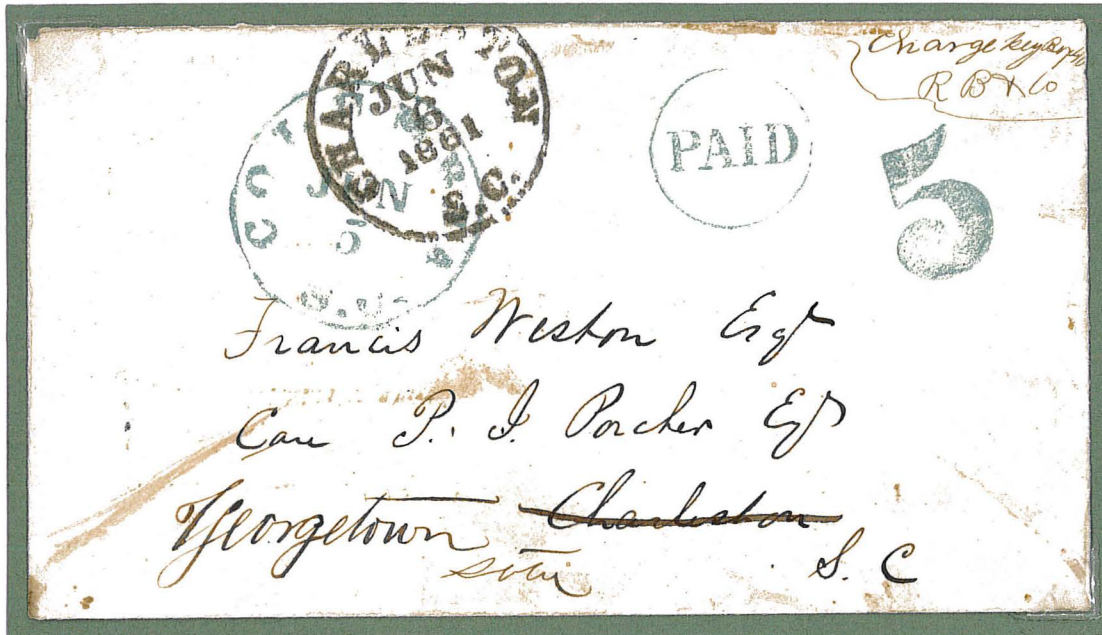 CHARLESTON
JUN
8
1861
S.C.
COL
JUN
5
S.C.
PAID
5
Charge
R B & Co
Francis Weston Esqr
Care P. J. Porcher Esqr
Georgetown Charleston
S. C